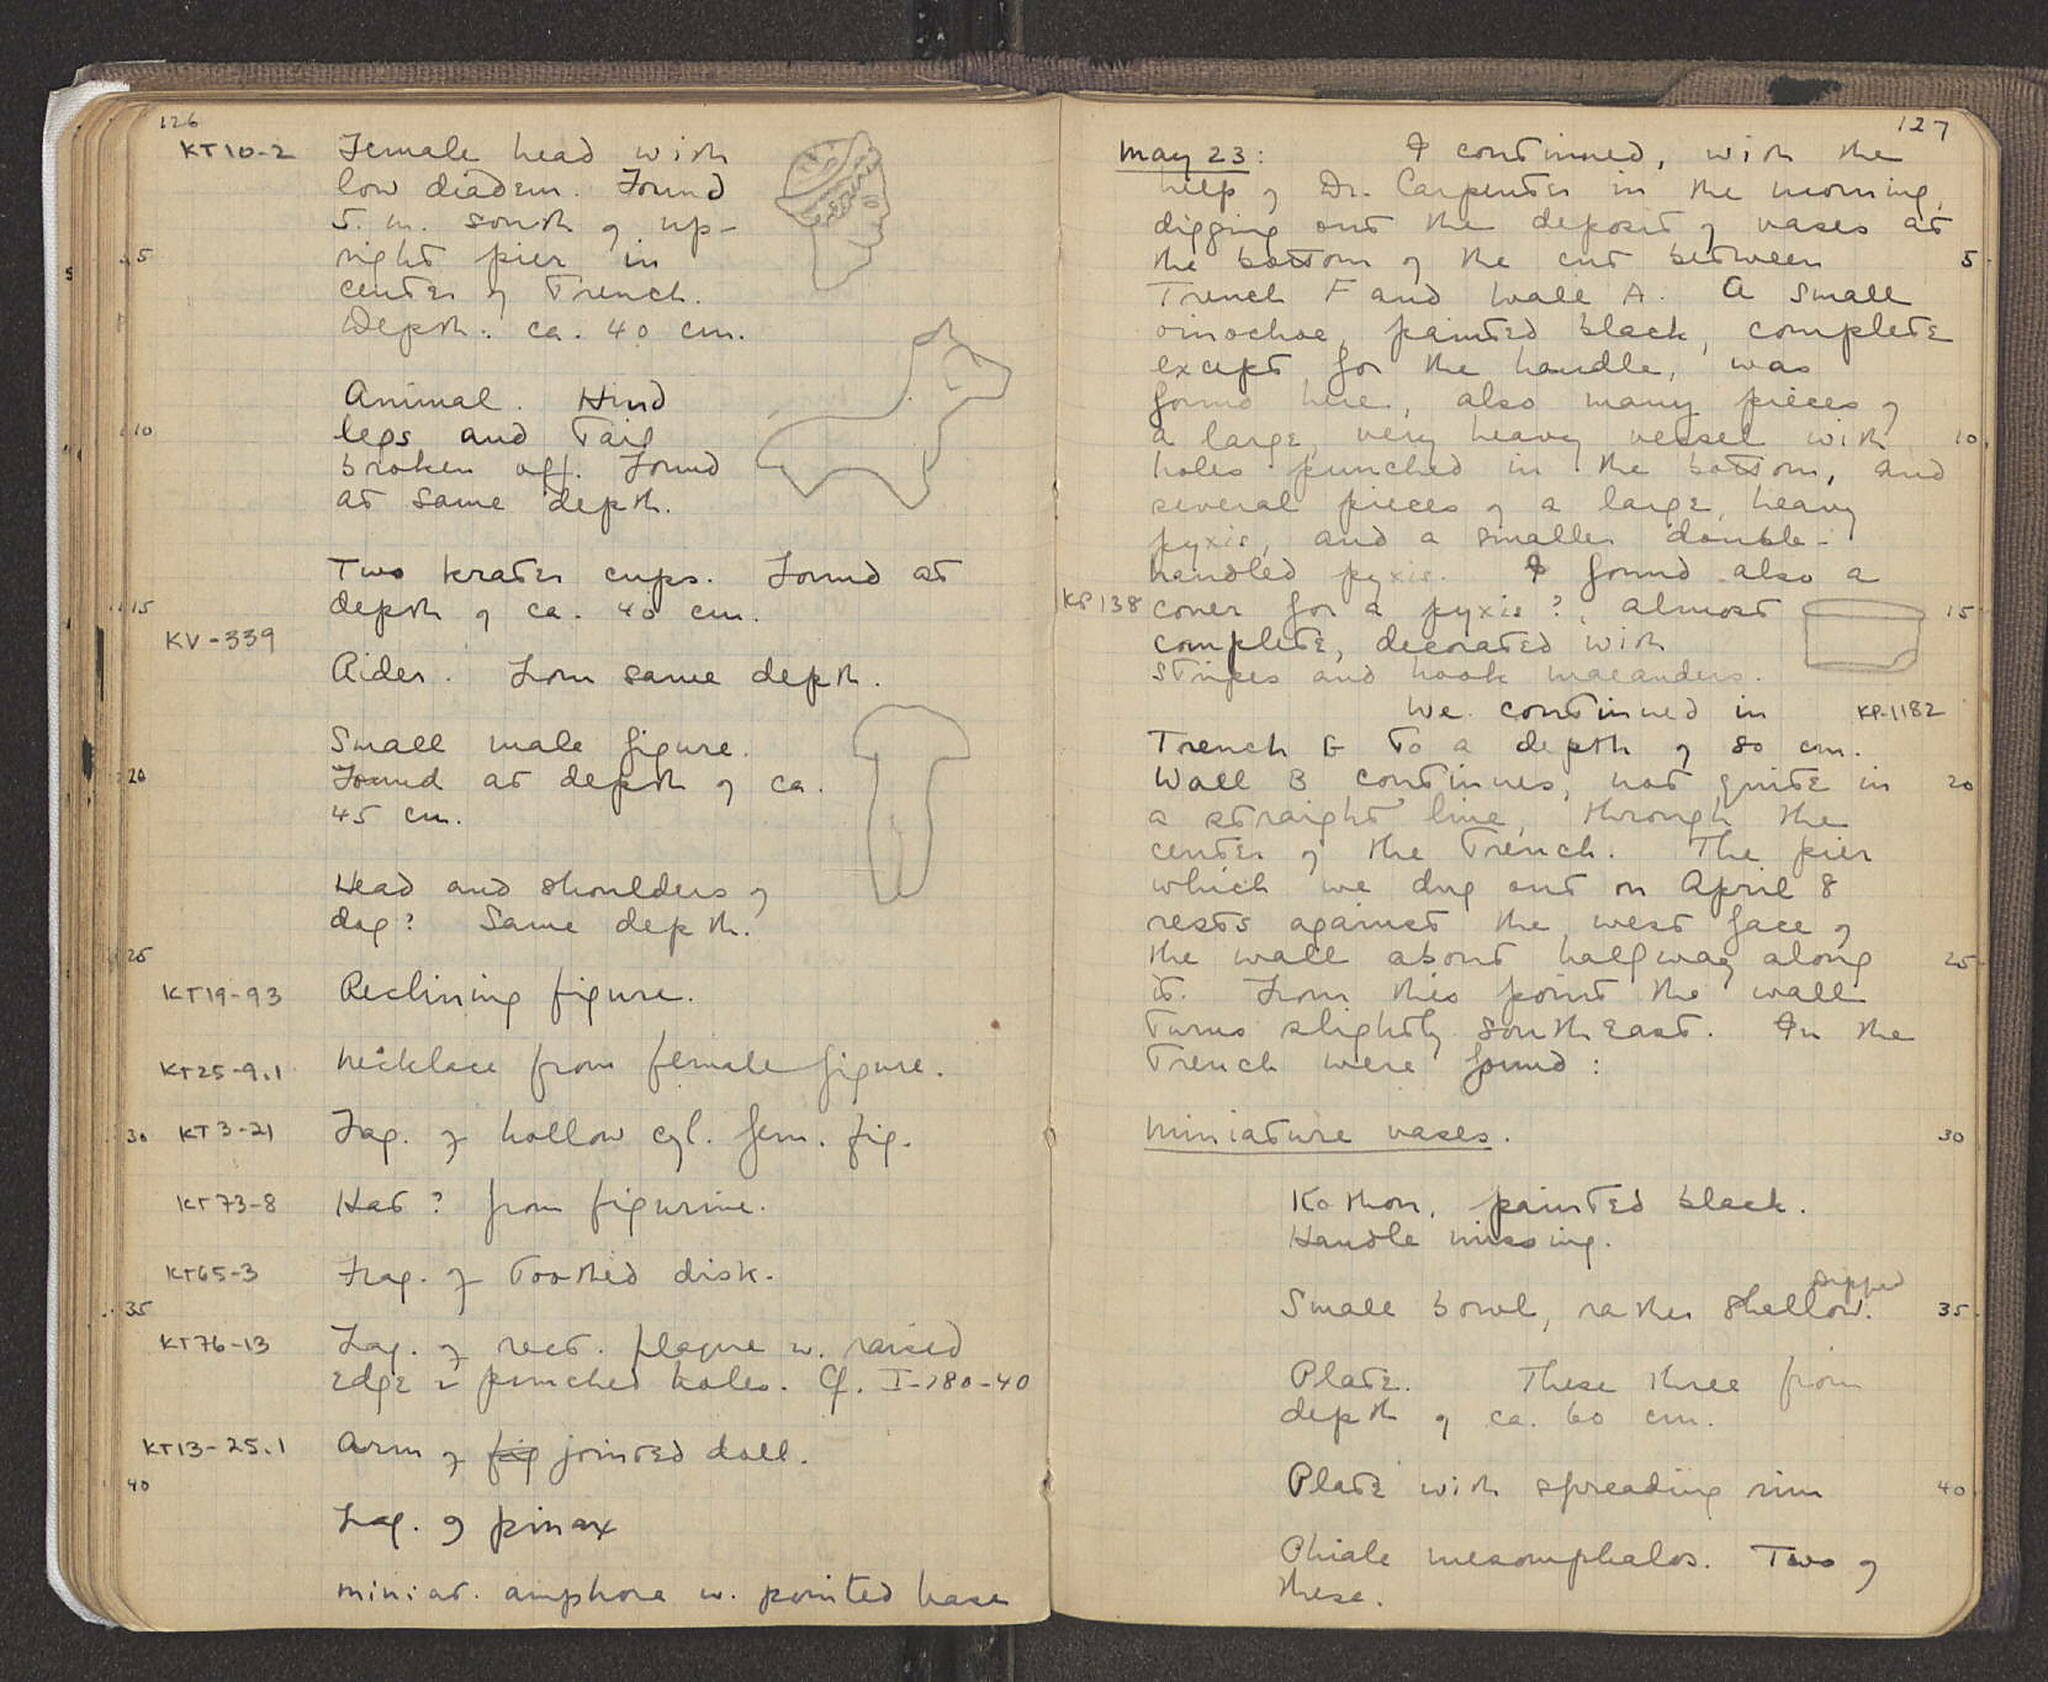 126
KT10-2 Female head with
low diadem. Found
5. m. south of up-
5 right pier in
center of Trench.
Depth: ca. 40 cm.
Animal. Hind
10 legs and Tail
broken off. Found
at same depth.
Two krater cups. Found at
15 depth of ca. 40 cm.
KV-339
Rider. From same depth.
Small male figure.
20 Found at depth of ca.
45 cm.
Head and shoulders of
dog? Same depth.
25
KT19-93 Reclining figure.
KT25-9.1 Necklace from female figure.
30 KT3-21 Frag. of hollow cyl. fem. fig.
KT73-8 Hat? from figurine.
KT65-3 Frag. of Toothed disk.
35
KT76-13 Frag. of rect. plaque w. raised
edge & punched holes. Cf. I-280-40
KT13-25.1 Arm of fig jointed doll.
40
Frag. of pinax
miniat. amphora w. pointed base
127
May 23: I continued, with the
help of Dr. Carpenter in the morning,
digging out the deposit of vases at
the bottom of the cut between 5
Trench F and Wall A. A small
oinochoe, painted black, complete
except for the handle, was
found here, also many pieces of
a large, very heavy vessel with 10
holes punched in the bottom, and
several pieces of a large, heavy
pyxis, and a smaller double-
handled pyxis. I found also a
KP138 cover for a pyxis?, almost 15
complete, decorated with
stripes and hook maeanders.
We continued in KP-1182
Trench G To a depth of 80 cm.
Wall B continues, not quite in 20
a straight line, through the
center of the Trench. The pier
which we dug out on April 8
rests against the west face of
the wall about halfway along 25
it. From this point the wall
Turns slightly southeast. In the
Trench were found:
Miniature vases. 30
Kothon, painted black.
Handle missing.
dipped
Small bowl, rather shallow. 35
Plate. These three from
depth of ca. 60 cm.
Plate with spreading rim 40
Phiale mesomphalos. Two of
these.